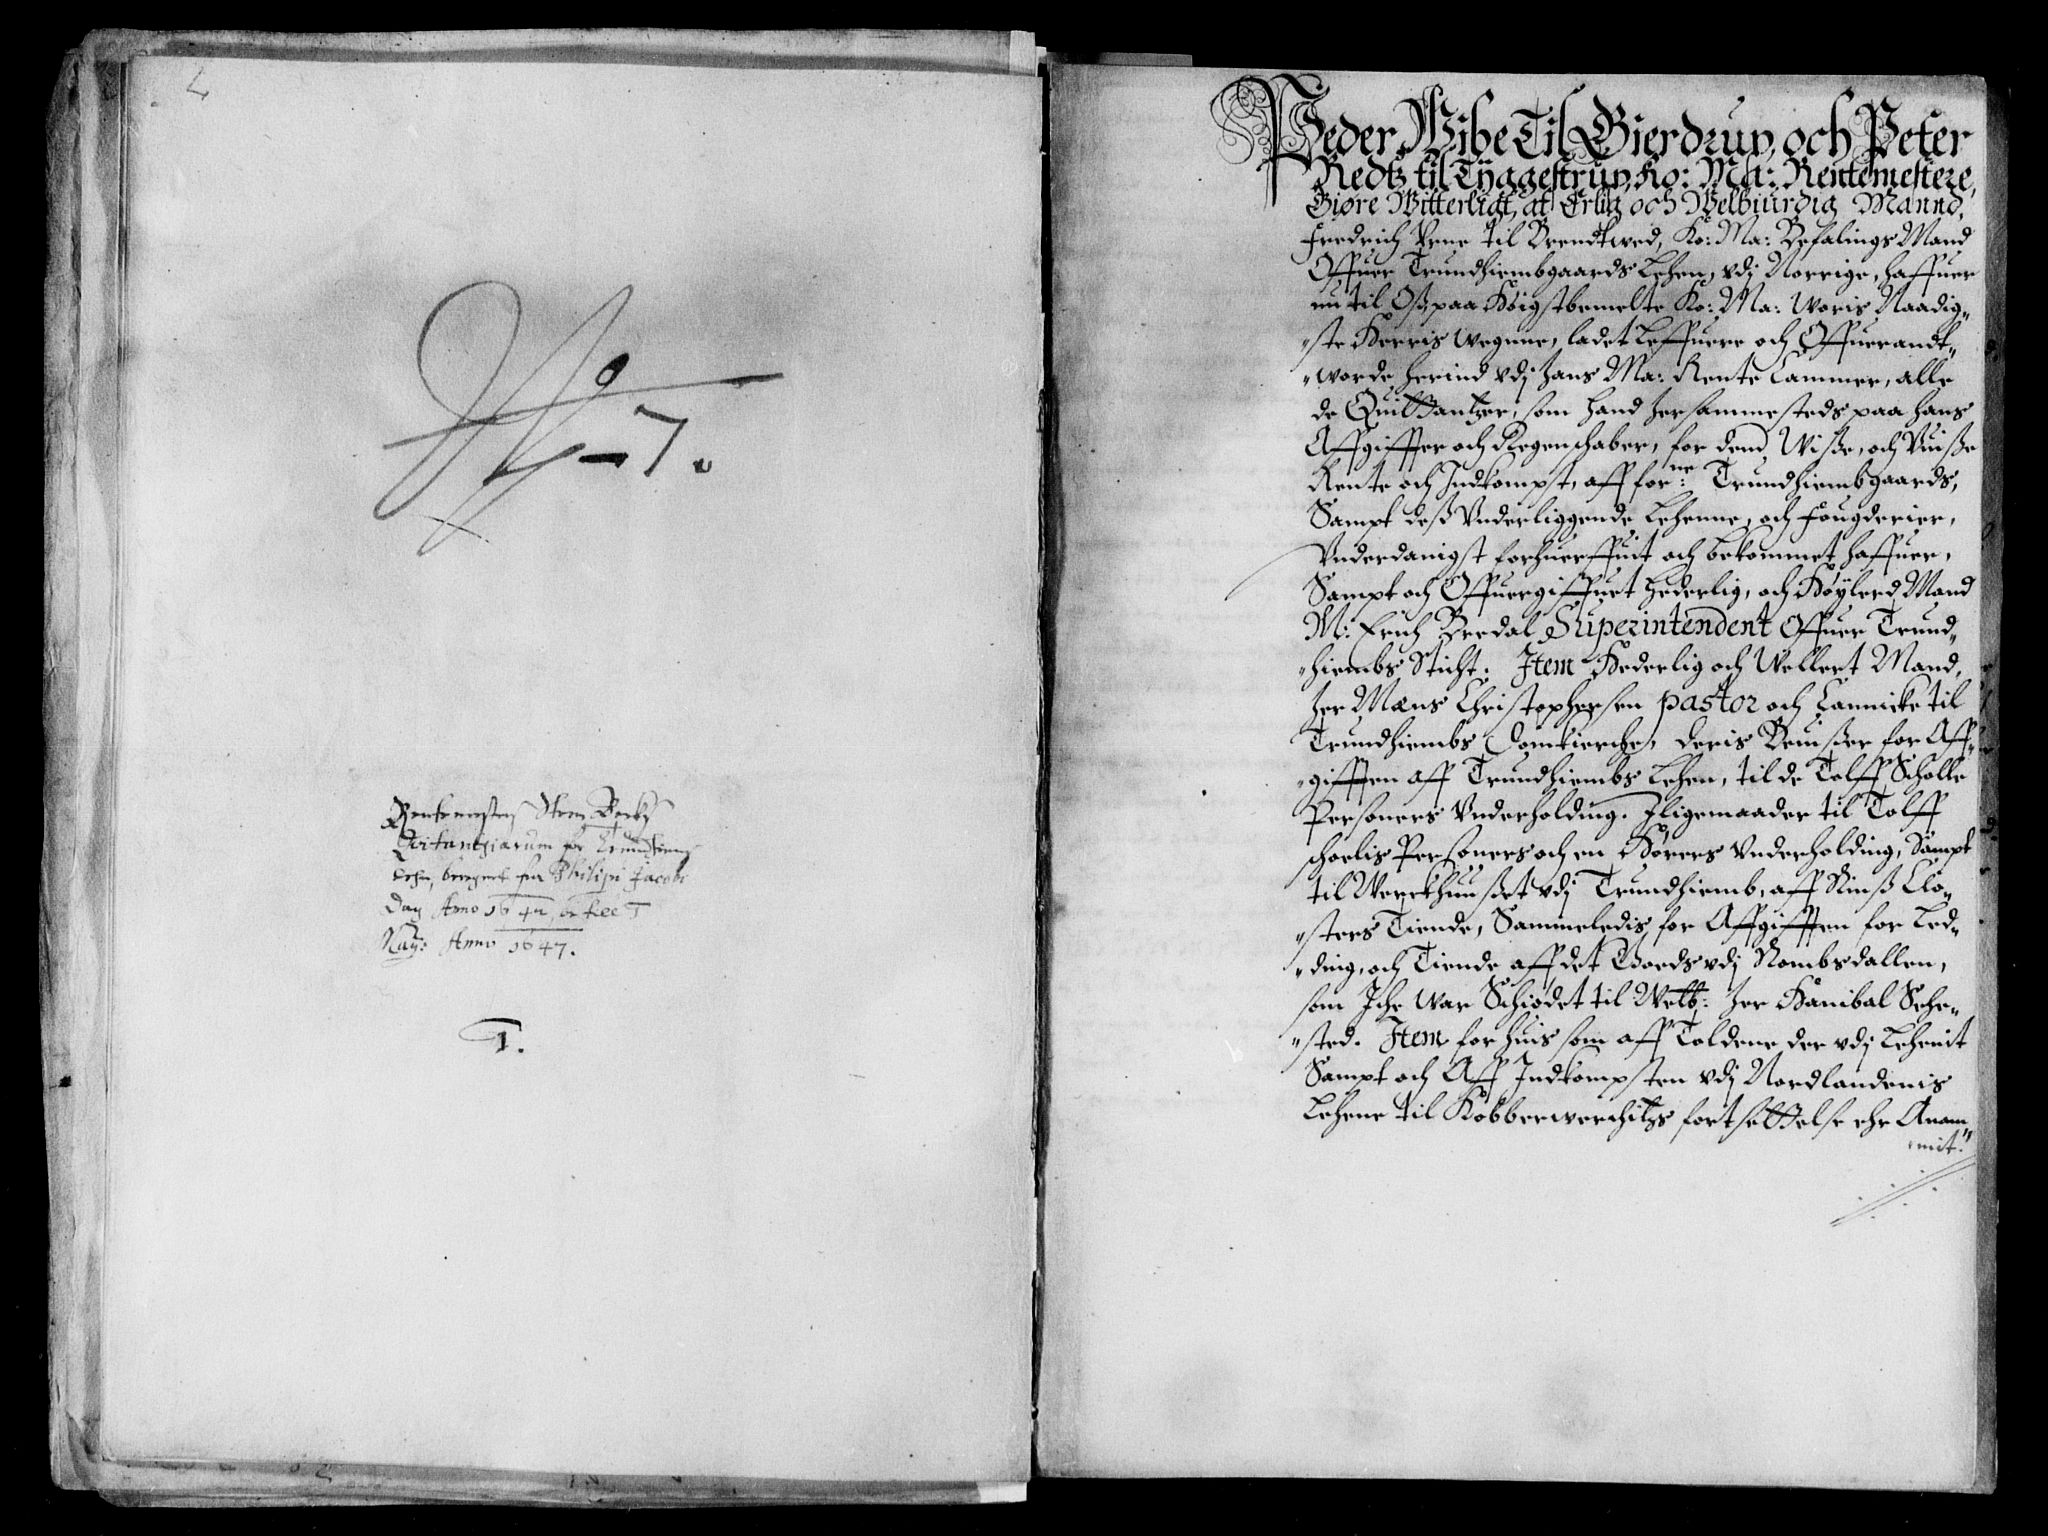 N: 7.
Rentemester Steen Becks
Qvitantziarum for Trundhiems
Lehn, beregnet fra Philipi Jacobi
Dag Anno 1642, til
Anno 1647.
1.
Peder Wibe Til Gierdrup, och Peter
Redtz til Tÿggestrup, Ko: Ma: Rentemestere,
Giøre Witterligt, at Erlig och Welbiurdig Mannd,
Fredrich Vrne til Brendtwed, Ko: Ma: Befalings Mand
Offuer Trundhiembgaards Lehen, vdj Norrige, haffuer
nu til Oß, paa Høigstbemelte Ko: Ma: Woris Naadig„
„ste Herris wegnne, ladet Leffuere och Offuerandt„
„worde herind vdj hans Ma: Rente Cammer, alle
de Quittantzer, som hand hersammesteds paa hans
Affgiffter och Regenschaber, for dend Wiße, och Vuiße
Rente och Indkompst, aff for:ne Trundhiembgaards,
Sampt deß Vnderliggende Lehenne, och Fougderier,
Vnderdanigst forhuerffuit och bekommet haffuer,
Sampt och Offuergiffuet Hederlig, och Høÿlerd Mand
M: Erich Bredal Superintendent Offuer Trund„
„hiembs Sticht: Item Hederlig och Wellert Mand,
Her Mons Christophersen pastor och Cannicke til
Trundhiembs Domkierche, deris Beuißer for Aff„
„gifften aff Trundhiembs Lehen, til de Tolff Scholle
Personers Vnderholding. Iligemaader til Tolff
scholis Personers och en Hørers Vnderholding, Sampt
til Werckhuußet vdj Trundhiemb, aff Rinß Clo„
„sters Tiende, Sammeledis for Affgifften for Led„
„ding, och Tiende aff det Goeds vdj Rombsdallen,
som Iche war Schiødet til Welb: Her Hanibal Sehe„
„sted. Item for huis som aff Toldene der vdj Lehenit
Sampt och Aff Indkompsten vdj Nordlandenis
Lehene til Kobberwerchitzs fortsettelse ehr Anam„
„mit.